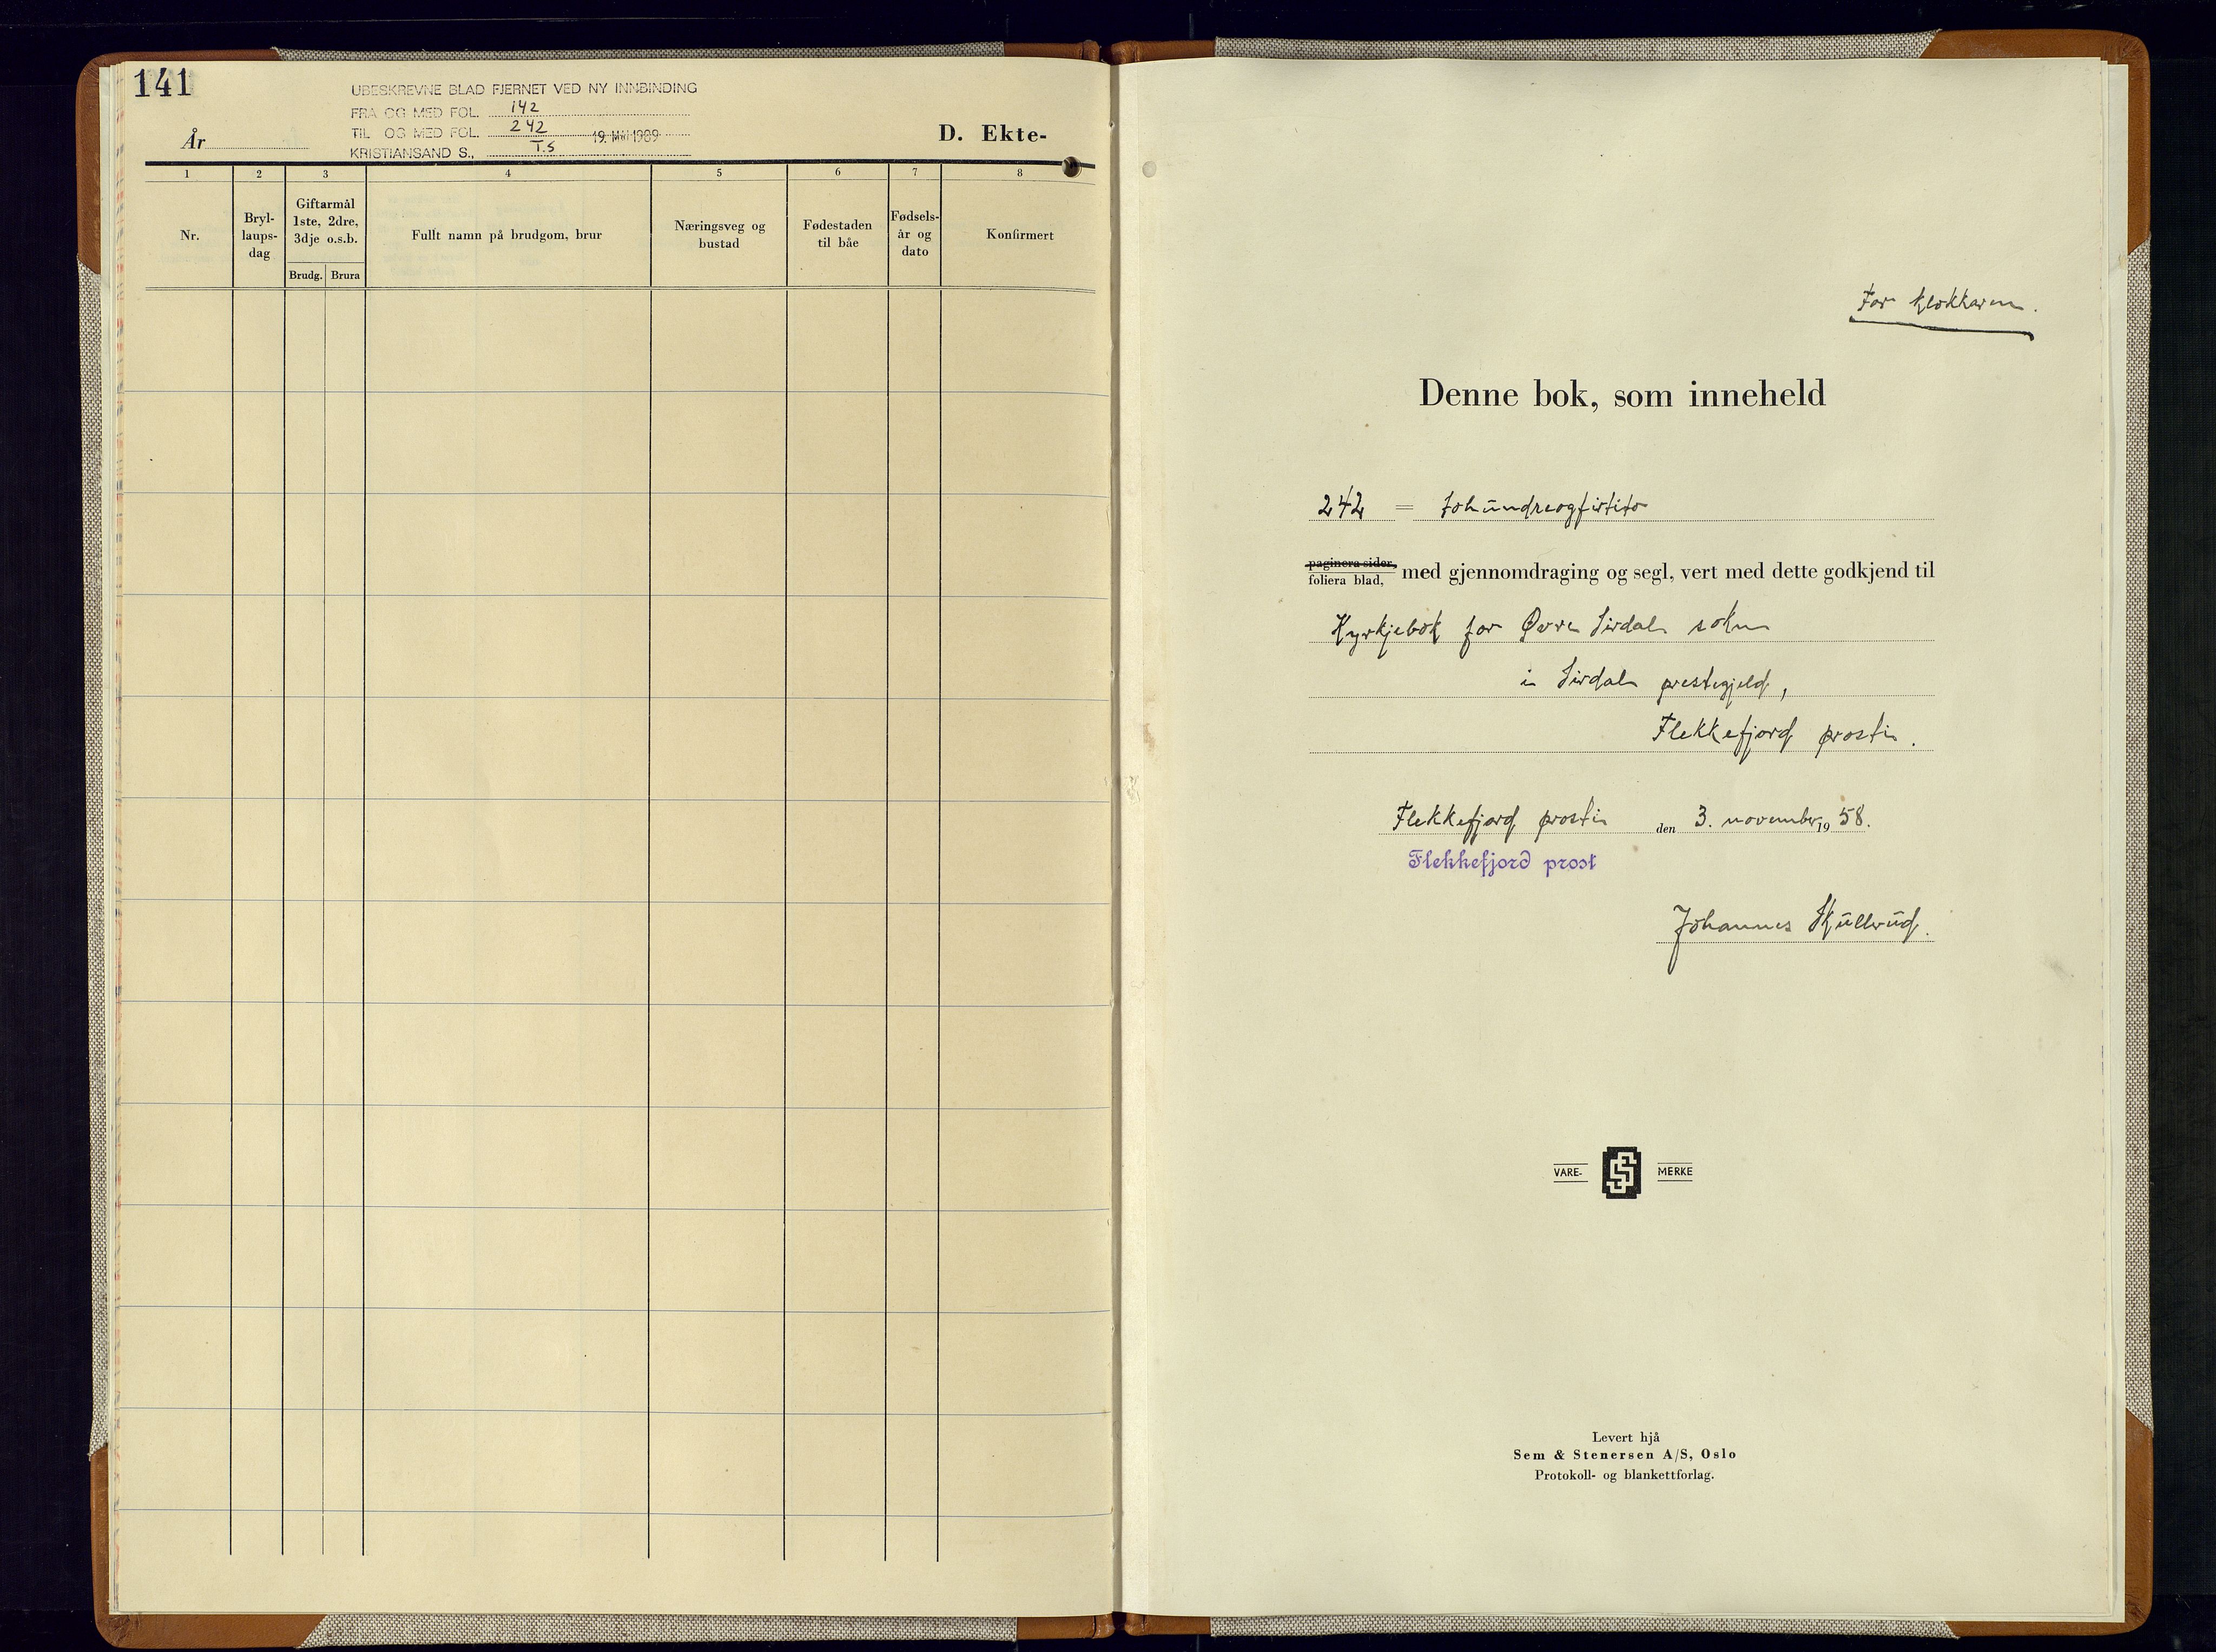 141
UBESKREVNE BLAD FJERNET VED NY INNBINDING
FRA OG MED FOL. 142
TIL OG MED FOL. 242
KRISTIANSAND S., T.S 19. MAI 1989
År
D. Ekte-
1 2 3 4 5 6 7 8
Nr.
Bryl-
laups-
dag
Giftarmål
1ste, 2dre,
3dje o.s.b.
Brudg. Brura
Fullt namn på brudgom, brur
Næringsveg og
bustad
Fødestaden
til båe
Fødsels-
år og
dato
Konfirmert
For klokkaren.
Denne bok, som inneheld
242 = tohundreogfirtito
paginera sider,
foliera blad, med gjennomdraging og segl, vert med dette godkjend til
Kyrkjebok for Øvre Sirdal sokn
i Sirdal prestegjeld,
Flekkefjord prosti.
Flekkefjord prosti den 3. november 1958.
Flekkefjord prost
Johannes Skullerud.
VARE- MERKE
Levert hjå
Sem & Stenersen A/S, Oslo
Protokoll- og blankettforlag.